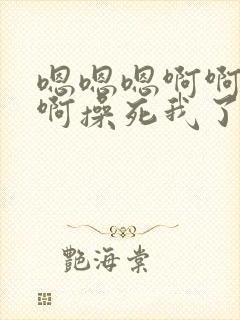 嗯嗯嗯啊啊
啊操死我了
艷海棠